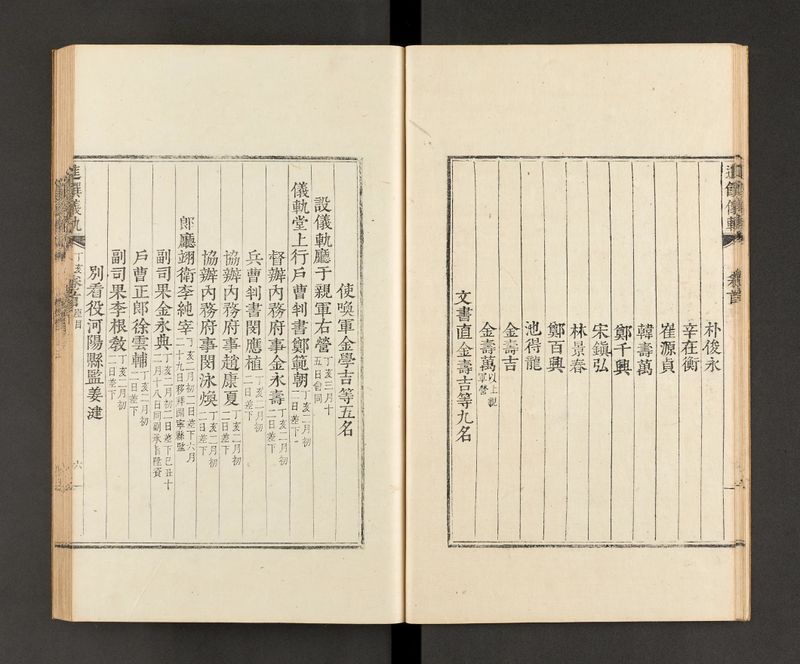 進饌儀軌 卷首
朴俊永
辛在衡
崔源貞
韓壽萬
鄭千興
宋鎭弘
林景春
鄭百興
池得龍
金壽吉
金壽萬以上親軍營
文書直金壽吉等九名
使喚軍金學吉等五名
設儀軌廳于親軍右營丁亥三月十五日會同
儀軌堂上行戶曹判書鄭範朝丁亥二月初二日差下
督辦內務府事金永壽丁亥二月初二日差下
兵曹判書閔應植丁亥二月初二日差下
協辦內務府事趙康夏丁亥二月初二日差下
協辦內務府事閔泳煥丁亥二月初二日差下
郎廳翊衛李純宰丁亥二月初二日差下六月二十九日移拜 縣監
副司果金永典丁亥二月初二日差下己丑十二月十八日 陞資
戶曹正郎徐雲輔丁亥二月初二日差下
副司果李根敎丁亥二月初二日差下
別看役河陽縣監姜湕
進饌儀軌 丁亥 卷首 座目 六